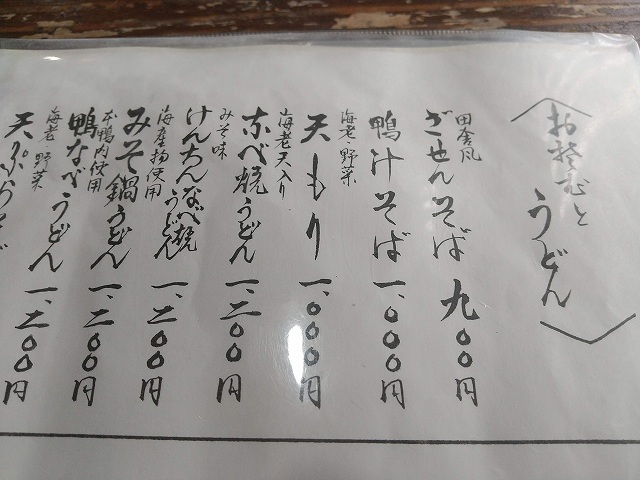 おそばと
うどん
田舎風
ざせんそば 九〇〇円
鴨汁そば 一、〇〇〇円
海老・野菜
天もり 一、〇〇〇円
海老天入り
なべ焼うどん 一、二〇〇円
みそ味
けんちんなべ焼うどん 一、二〇〇円
海産物使用
みそ鍋うどん 一、二〇〇円
本鴨肉使用
鴨なべうどん 一、二〇〇円
海老・野菜
天ぷらそば